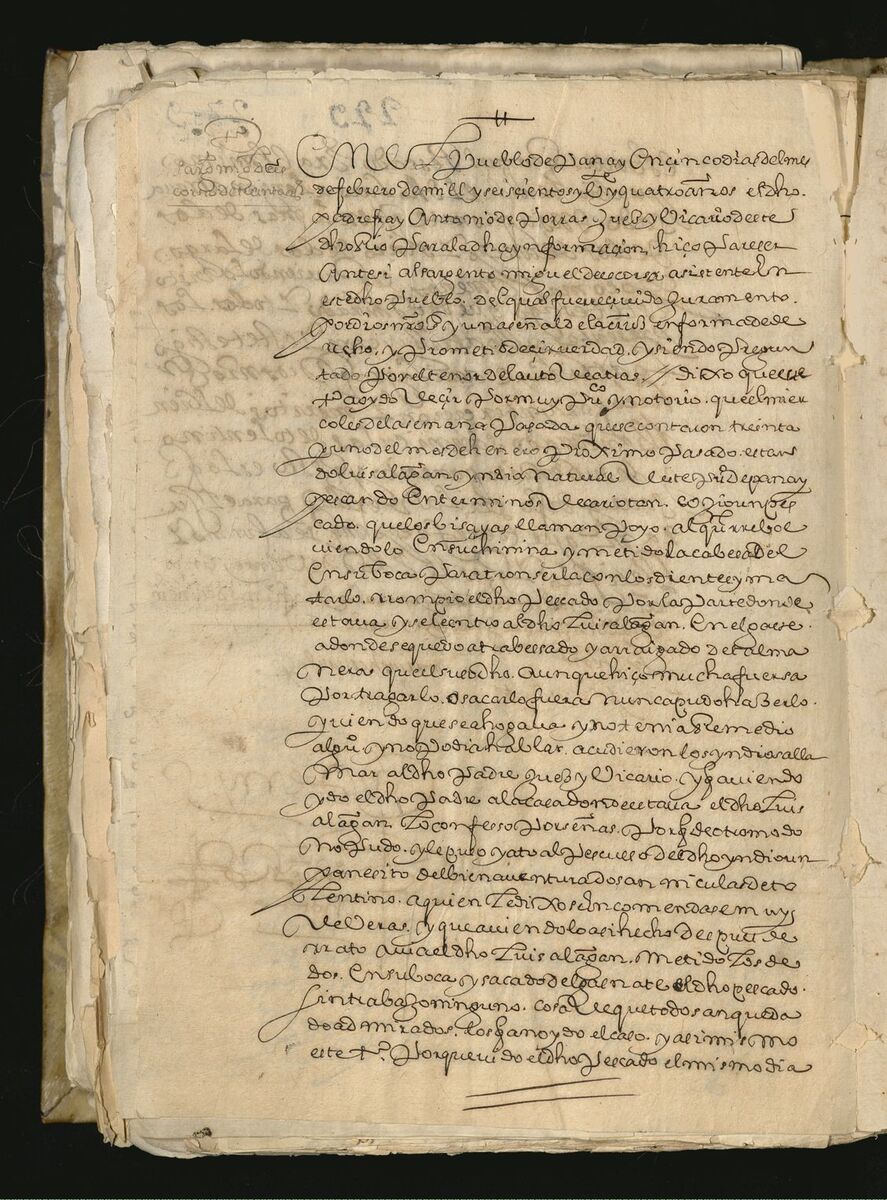 En el Pueblo de Panay En çinco dias del mes
de febrero de mill y seisçientos y Veynte y quatro años el dho
padre fray Antonio de Porras Juez y Vicario deste
dho Para la dha ynformaçion hiço Pareçer
Ante si al sargento miguel de escorsa asistente En
este dho Pueblo. del qual fue reçiuido Juramento
por dios nro sr y una señal de la cruz en forma de de
recho. y Prometio deçir verdad. y siendo Pregun
tado Por el tenor del auto Dixo que este
tº a oydo deçir Por muy Puco y notorio. que el mier
coles de la semana Pasada que se contaron treinta
y uno del mes de henero Proximo Pasado. estan
do luis alagan yndio natural deste Puo de panay
pescando En terminos de cariotan. cojio un pes
cado. que los bisayas llaman Poyo. al qual
viendolo y metido la cabesa del
En su boca Para tronserla con los dientes y ma
tarlo. rrompio el dho Pescado Por la Parte donde
estaua y se le entro al dho Luis alagan. En el
adonde se quedo atrabessado y arraigado de tal ma
nera que el suso dho. Aunque hiço mucha fuersa
Por tragarlo. o sacarlo fuera nunca pudo hazerlo.
y viendo que se ahogaua y no tenia rremedio
alguo y no Podia hablar. acudieron los yndios a lla
mar al dho Padre Juez y Vicario. y hauiendo
ydo el dho Padre a la casa donde estaua el dho Luis
alagan. Lo confeso Por señas. Porq de otro modo
no Pudo. y le puso y ato al Pescueso del dho yndio un
panesito del bienauenturado san niculas de to
lentino. a quien Le dixo se encomendase muy
de Veras. y que auiendolo asi hecho despues de
rrato auia el dho Luis alagan. metido Los de
dos. En su boca y sacado del gaznate el dho pescado
sin trabajo ninguno. cosa de que todos an queda
do admirados. los q han oydo el caso. y asi mismo
este tº. Porque vido el dho Pescado el mismo dia